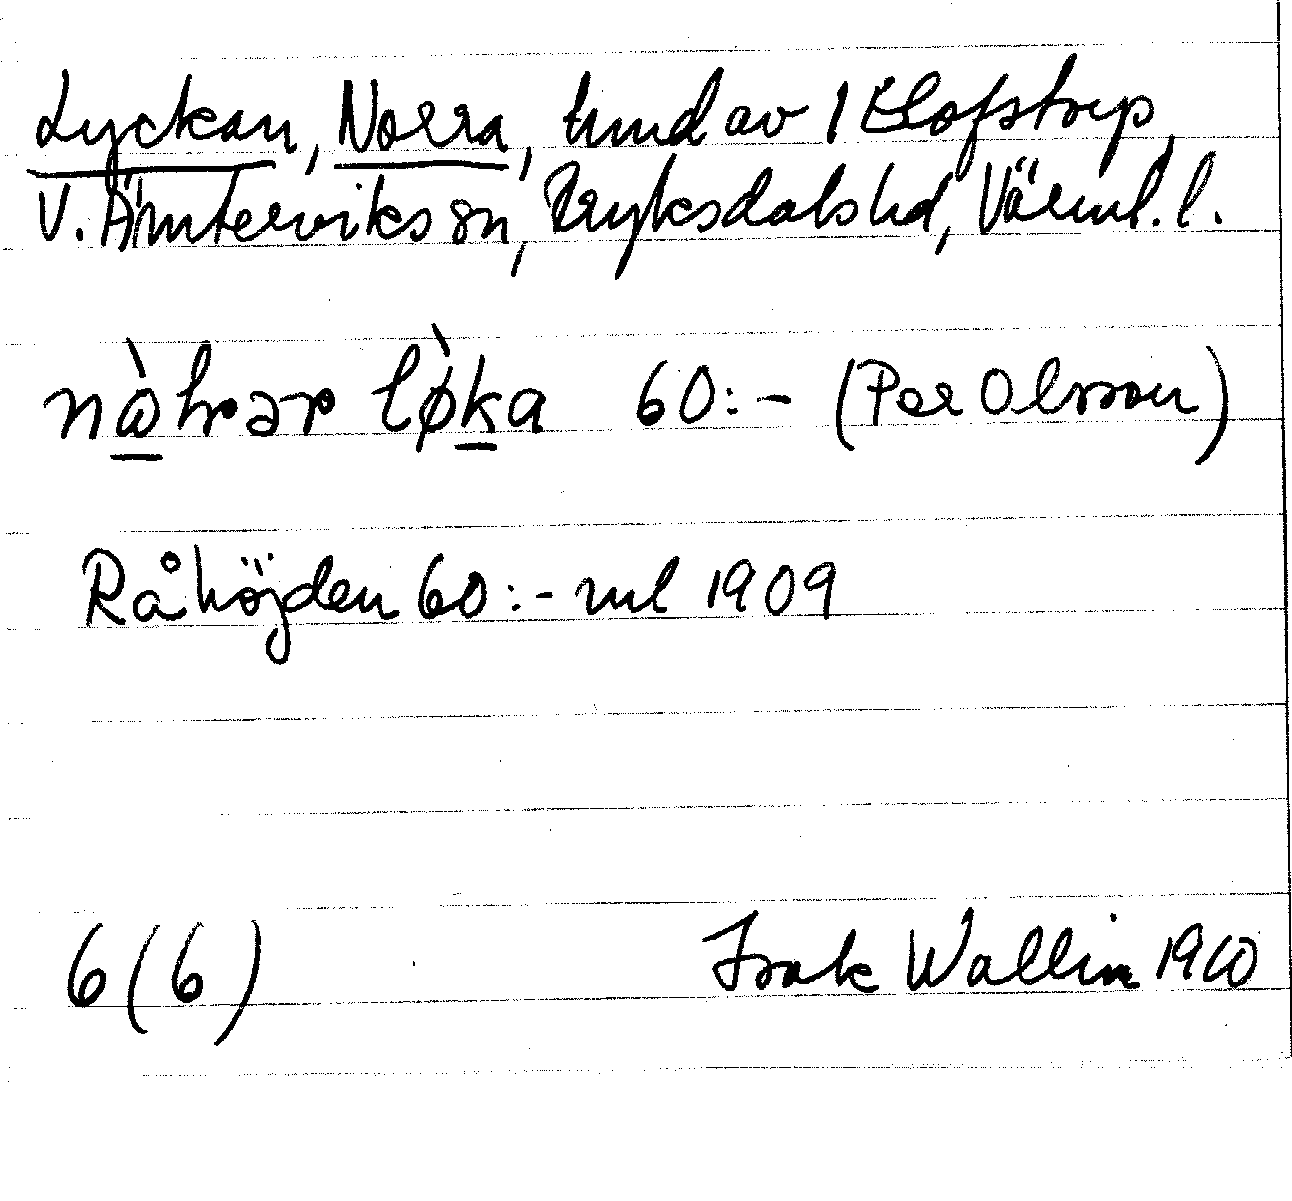 Lyckan, Norra, hmd av 1 Elofstorp,
V. Ämterviks sn, Fryksdals hd, Värml. l.
60:- (Per Olsson)
Råhöjden 60:- ml 1909
6(6) Isak Wallin 1960